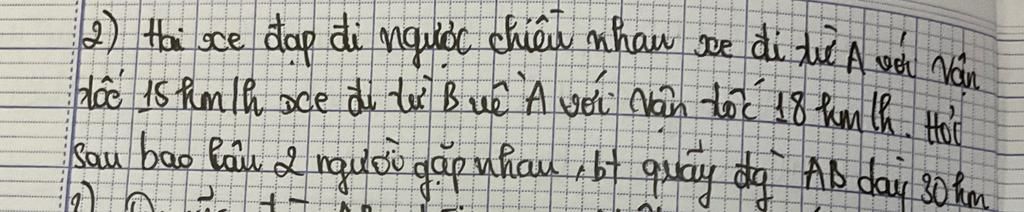 2) Hai xe đạp đi ngược chiều nhau xe đi từ A với vận
tốc 15 km/h xe đi từ B về A với vận tốc 18 km/h. Hỏi
sau bao lâu 2 người gặp nhau, bt quãy đg AB dài 30 km